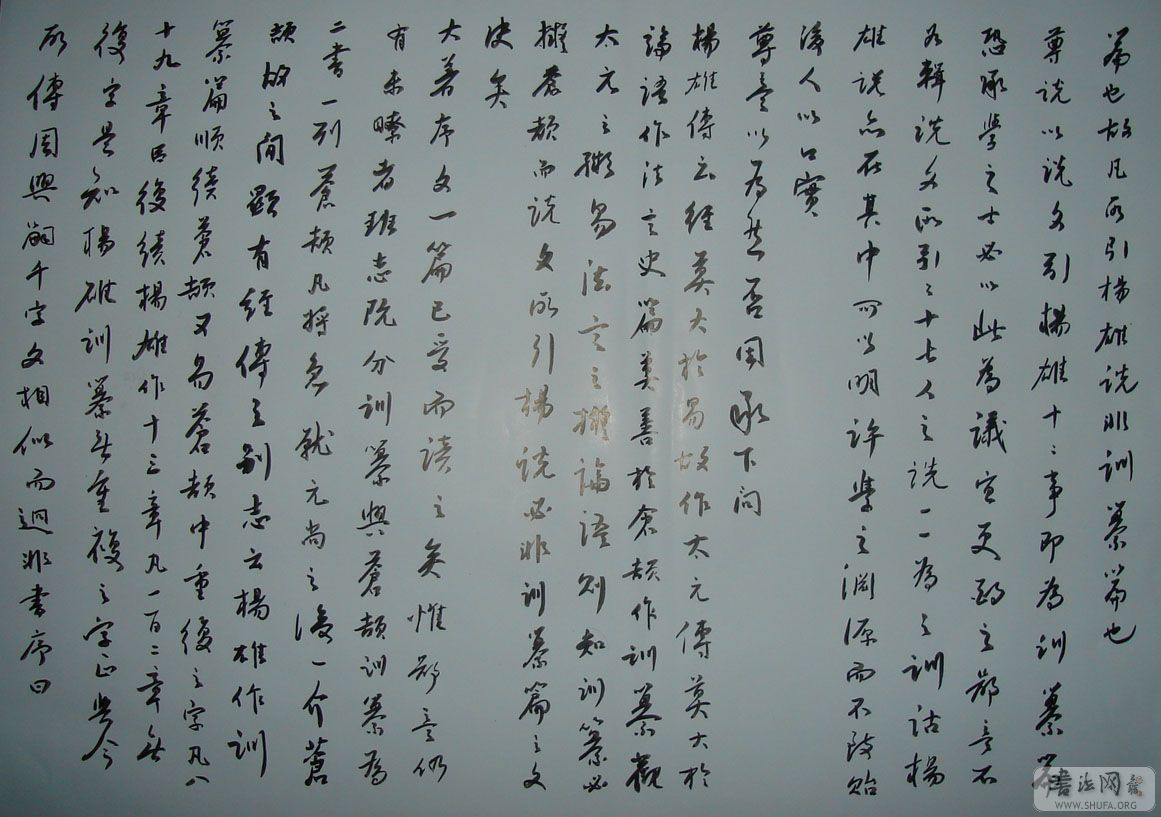 篇也故凡所引楊雄說非訓纂篇也
尊說以說文引楊雄十二事即為訓纂篇
恐承學之士必以此為議宣更酌之鄙意不
如輯說文所引二十七人之說一一為之訓詁楊
雄說亦在其中可以明許學之淵源而不致貽
後人以口實
尊意以為然否因承下問
楊雄傳云經莫大於易故作太元傳莫大於
論語作法言史篇莫善於倉頡作訓纂觀
太元之擬易法言之擬論語則知訓纂必
擬蒼頡而說文所引楊說必非訓纂篇之文
決矣
大著序文一篇已受而讀之矣惟鄙意仍
有未瞭者班志既分訓纂與蒼頡訓纂為
二書一列蒼頡凡將急就元尚之後一介蒼
頡故之間顯有經傳之別志云楊雄作訓
纂篇順續蒼頡又易蒼頡中重復之字凡八
十九章臣復續楊雄作十三章凡一百二章無
復字是知楊雄訓纂無重複之字正與今
所傳周興嗣千字文相似而迥非書序曰
書法网
WWW.SHUFA.ORG